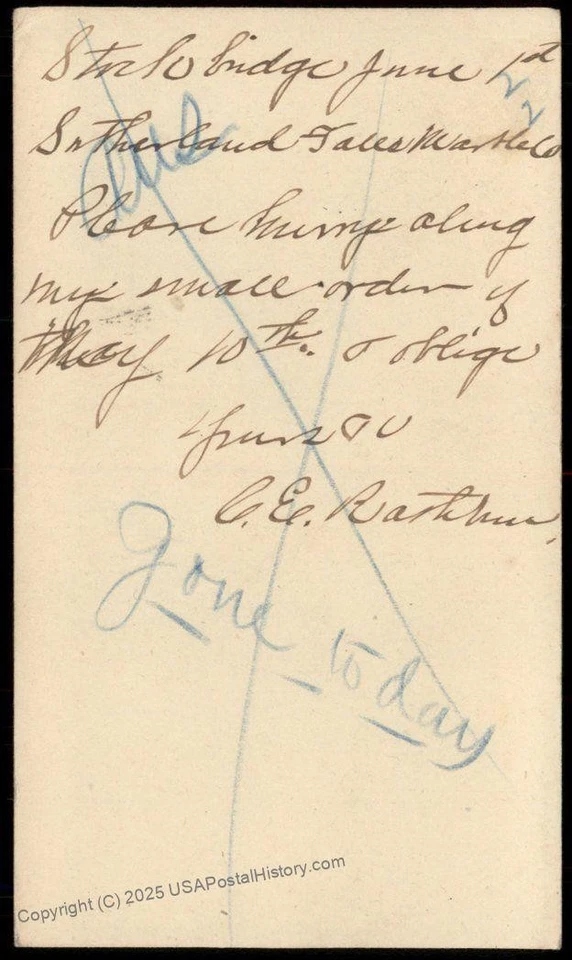 Stockbridge June 1st
22
Ans
Sutherland Falls Marble Co
Please hurry along
my small order of
May 10th. & oblige
Yours &c
C. E. Rathbun.
Gone today
Copyright (C) 2025 USAPostalHistory.com